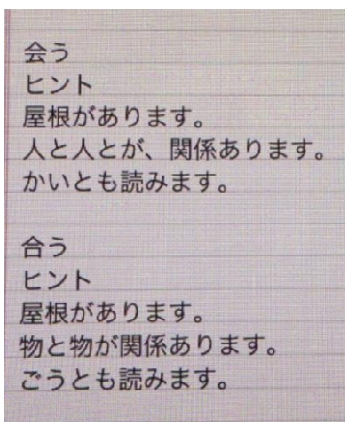 会う
ヒント
屋根があります。
人と人とが、関係あります。
かいとも読みます。
合う
ヒント
屋根があります。
物と物が関係あります。
ごうとも読みます。